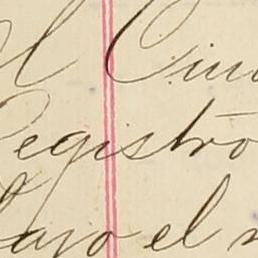 el Ciud
Registro
bajo el n